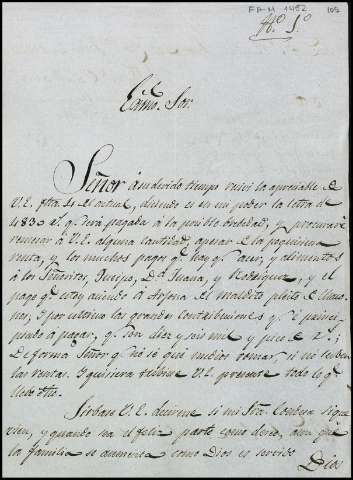 FA-M 1492 105
N.º 5.º
Exmo. Sor.
Señor á su devido tiempo recivi la apreciable de
V.E. fha. 4 el actual, diciendo es en mi poder la letra de
4830 r.s q.e será pagada á la posible brebedad, y procuraré
remesar á V.E. alguna cantidad, apesar de la poquisima
renta, y los muchos pagos q.e hay q.e acer, y alimentos
á los Señoritos, Queipo, D.ª Juana, y Rodriguez, y el
pago q.e estoy aciendo á Arjona el maldito pleito de
nos, y por ultimo las grandes contribuciones q.e é princi-
piado á pagar, q.e son diez y seis mil y pico de r.s;
De forma Señor q.e no sé que rumbo tomar, si no benden
las rentas. Yo quisiera tubiese V.E. presente todo lo q.e
llebo dho.
Sirbase V.E. decirme si mi Sra. Condesa sigue
vien, y quando sea el feliz parto como deseo, aun que
la familia se aumenta como Dios es servido
Dios